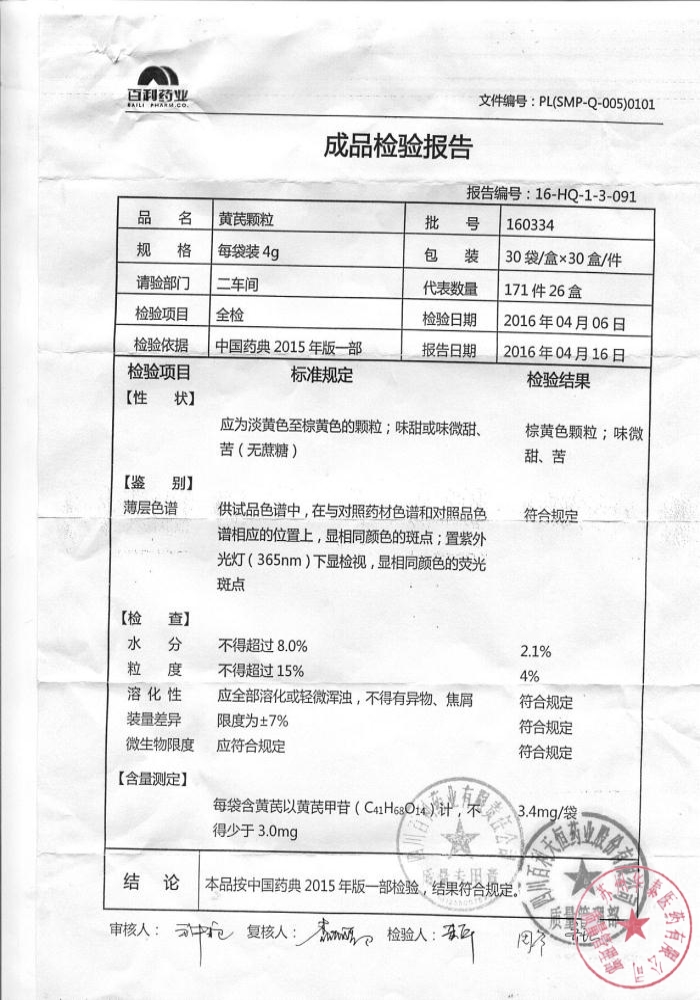 百利药业
BAILI PHARM.CO.
文件编号：PL(SMP-Q-005)0101
成品检验报告
报告编号：16-HQ-1-3-091
品 名 黄芪颗粒 批 号 160334
规 格 每袋装 4g 包 装 30 袋/盒×30 盒/件
请验部门 二车间 代表数量 171 件 26 盒
检验项目 全检 检验日期 2016 年 04 月 06 日
检验依据 中国药典 2015 年版一部 报告日期 2016 年 04 月 16 日
检验项目 标准规定 检验结果
【性 状】
应为淡黄色至棕黄色的颗粒；味甜或味微甜、 棕黄色颗粒；味微
苦（无蔗糖） 甜、苦
【鉴 别】
薄层色谱 供试品色谱中，在与对照药材色谱和对照品色 符合规定
谱相应的位置上，显相同颜色的斑点；置紫外
光灯（365nm）下显检视，显相同颜色的荧光
斑点
【检 查】
水 分 不得超过 8.0% 2.1%
粒 度 不得超过 15% 4%
溶 化 性 应全部溶化或轻微浑浊，不得有异物、焦屑 符合规定
装量差异 限度为±7% 符合规定
微生物限度 应符合规定 符合规定
【含量测定】
每袋含黄芪以黄芪甲苷（C41H68O14）计，不 3.4mg/袋
得少于 3.0mg
结 论 本品按中国药典 2015 年版一部检验，结果符合规定。
审核人： 复核人： 检验人：
四川百利药业有限责任公司
质量专用章
四川百利天恒药业股份有限公司
质量管理部
医药有限公司